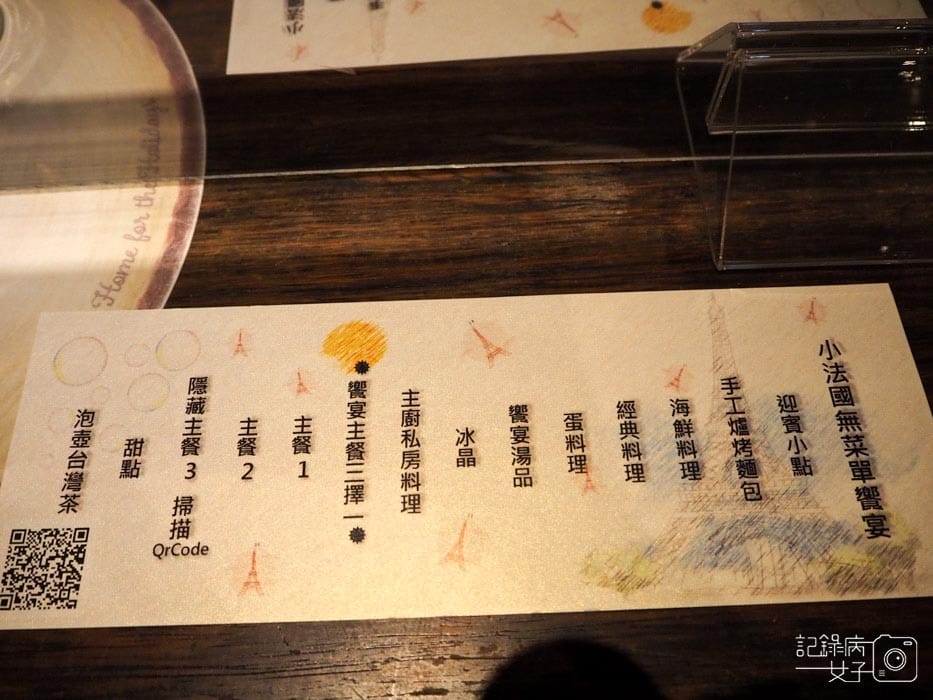 小法國無菜單饗宴
迎賓小點
手工爐烤麵包
海鮮料理
經典料理
蛋料理
饗宴湯品
冰晶
主廚私房料理
饗宴主餐三擇一
主餐1
主餐2
隱藏主餐3 掃描
QrCode
甜點
泡壺台灣茶
Home for the Holidays
小法
記錄病
女子